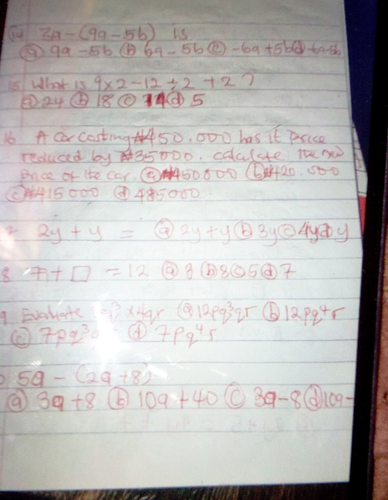 14 3a - (9a - 5b) is
(a) 9a - 5b (b) 6a - 5b (c) -6a + 5b (d)
15 What is 9 x 2 - 12 ÷ 2 + 2 ?
(a) 24 (b) 18 (c) 14 (d) 5
16 A car costing ₦450.000 has it price
reduced by ₦35000. calculate the new
price of the car. (a) ₦450000 (b) ₦420.000
(c) ₦415000 (d) 485000
2y + y = (a) 2y + y (b) 3y (c) 4y (d) y
8 7 + □ = 12 (a) 3 (b) 8 (c) 5 (d) 7
9 Evaluate x 4qr (a) 12pq³r (b) 12pq⁴r
(c) 7pq³ (d) 7pq⁴r
5a - (2a + 8)
(a) 3a + 8 (b) 10a + 40 (c) 3a - 8 (d) 10a -